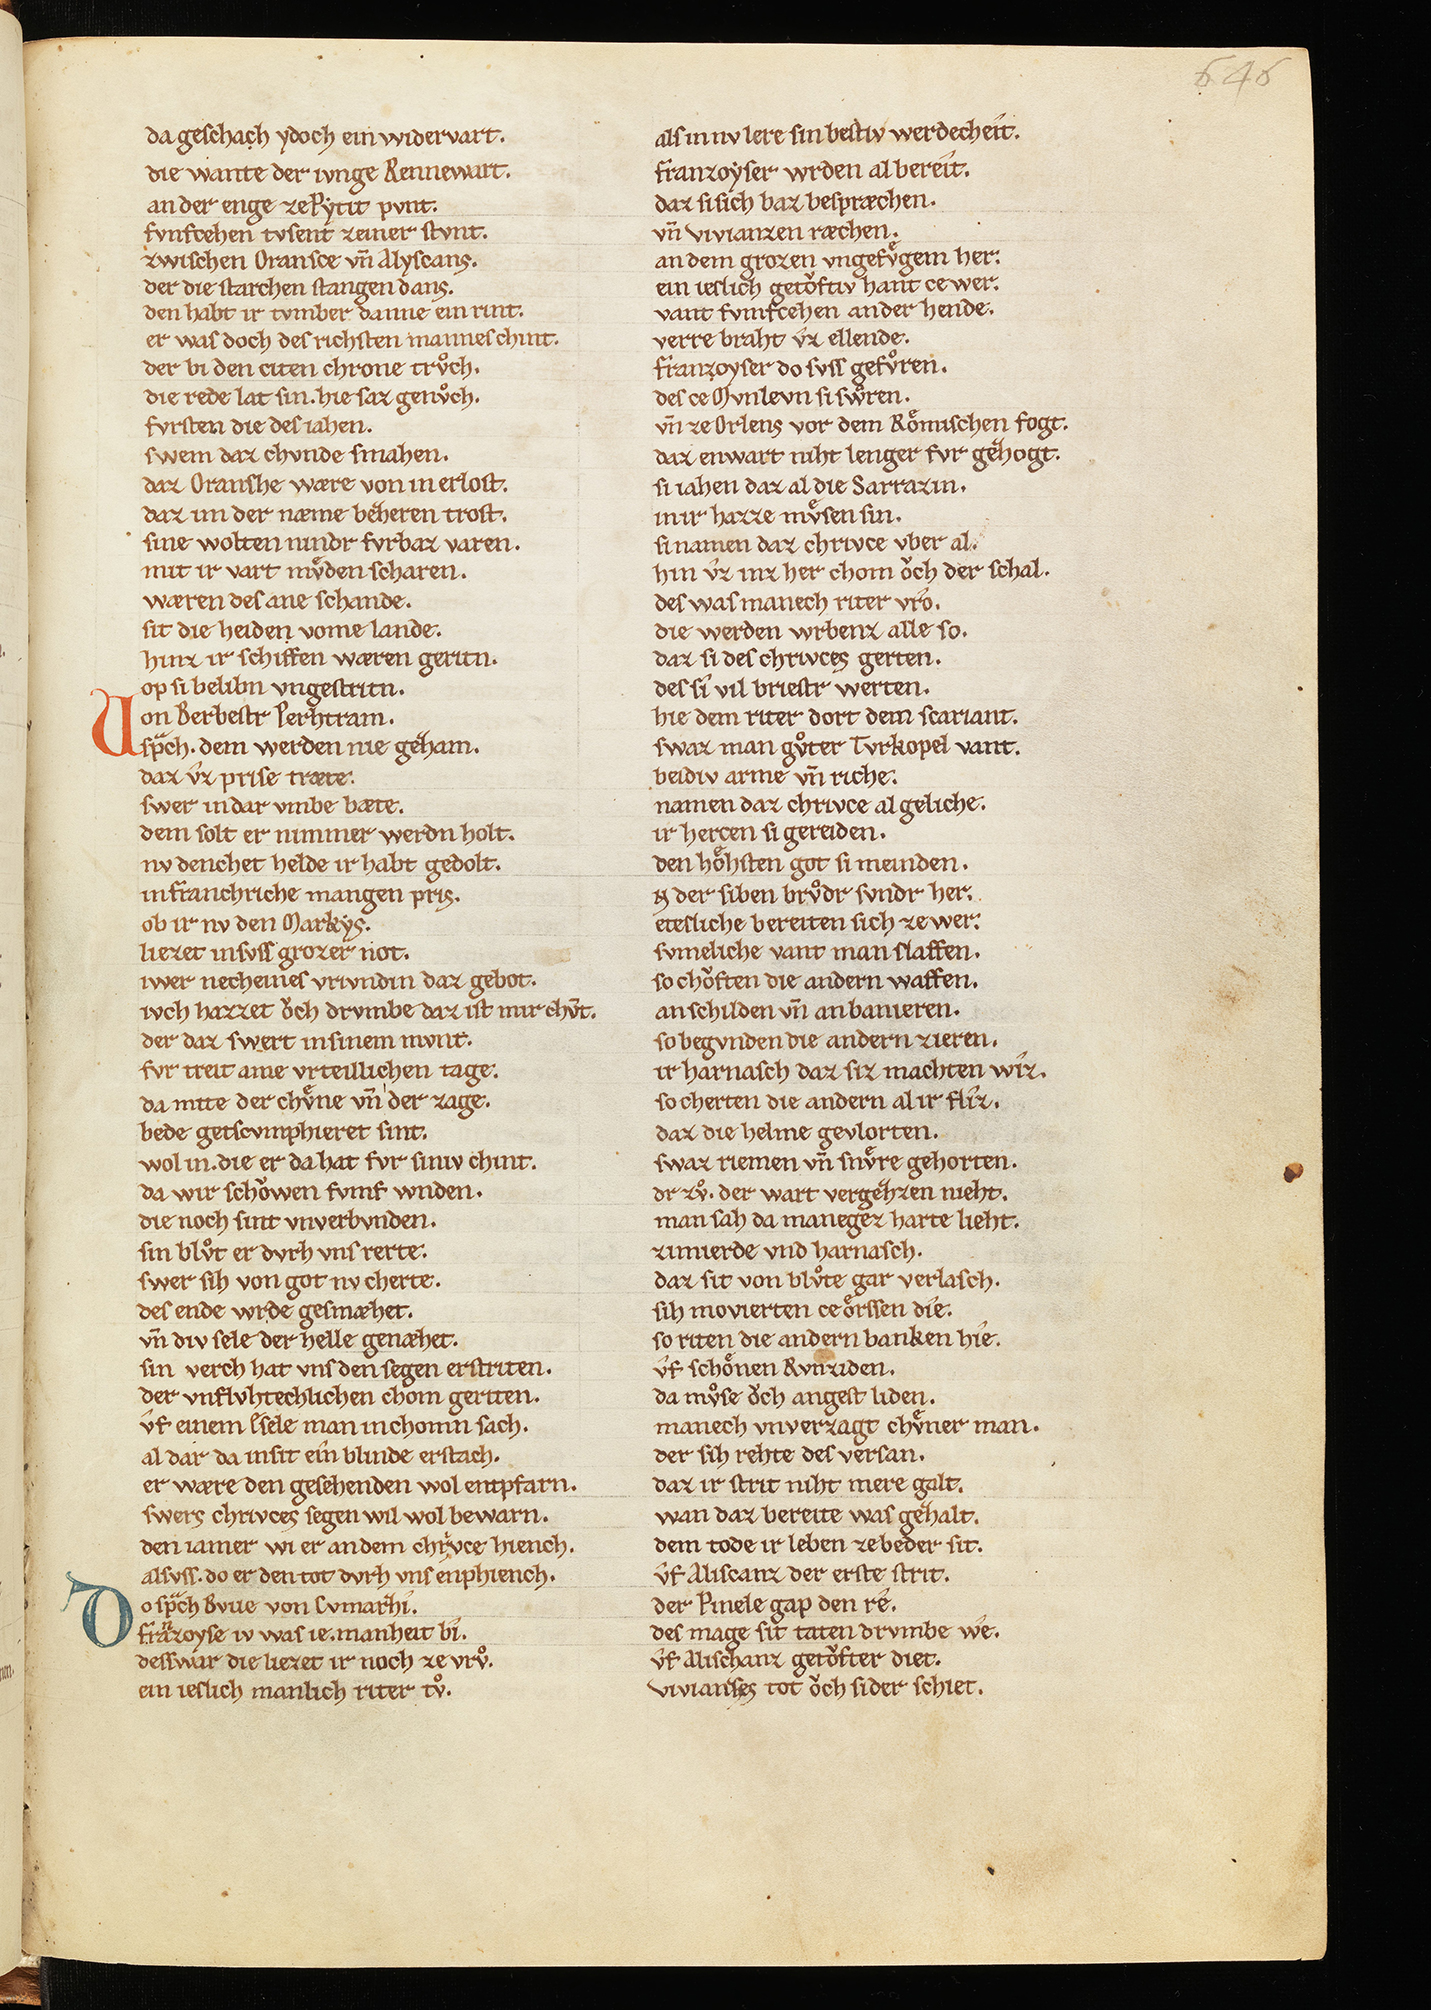 646
da geschach ydoch ein widervart.
die wante der ivnge Rennewart.
an der enge ze Pytit pvnt.
fvnfcehen tvsent zeiner stvnt.
zwischen Oransce vn̄ Alyscans.
der die starchen stangen dans.
den habt ir tvmber danne ein rint.
er was doch des richsten mannes chint.
der bi den citen chrone trvͦch.
die rede lat sin. hie saz genvͦch.
fvrsten die des iahen.
swem daz chvnde smahen.
daz Oranshe wære von in erlost.
daz im der næme beheren trost.
sine wolten nindr fvrbaz varen.
mit ir vart mvͤden scharen.
wæren des ane schande.
sit die heiden vome lande.
hinz ir schiffen wæren geritn.
op si belibn vngestritn.
Von Berbestr Perhtram.
spᵃch. dem werden nie geham.
daz v̂z prise træte.
swer in dar vmbe bæte.
dem solt er nimmer werdn holt.
nv denchet helde ir habt gedolt.
in franchriche mangen pris.
ob ir nv den Markys.
liezet in svss grozer not.
iwer necheines vrivndin daz gebot.
ivch hazzet ovch drvmbe daz ist mir chv̄t.
der daz swert in sinem mvnt.
fvr treit ame vrteillichen tage.
da mite der chvͤne vn̄ der zage.
bede getscvmphieret sint.
wol in. die er da hat fvr siniv chint.
da wir schoͮwen fvmf wnden.
die noch sint vnverbvnden.
sin blvͦt er dvrh vns rerte.
swer sih von got nv cherte.
des ende wrde gesmæhet.
vn̄ div sele der helle genæhet.
sin verch hat vns den segen erstriten.
der vnflvhtechlichen chom geriten.
v̂f einem Esele man in chomn sach.
al dar da in sit ein blinde erstach.
er wære den gesehenden wol entpfarn.
swers chrivces segen wil wol bewarn.
den iamer wi er an dem chrvce hiench.
alsvss. do er den tot dvrh vns enphiench.
Do spᵃch Bvue von Cvmarhi.
franzoyse iv was ie. manheit bi.
desswar die liezet ir noch ze vrvͦ.
ein ieslich manlich riter tvͦ.
als in nv lere sin bestiv werdecheit.
franzoyser wrden al bereit.
daz si sich baz bespræchen.
vn̄ vivianzen ræchen.
an dem grozen vngefvͤgem her.
ein ieslich getoͮftiv hant ce wer.
vant fvmfcehen ander hende.
verre braht v̂z ellende.
franzoyser do svss gefvͦren.
des ce Mvnlevn si swͦren.
vn̄ ze Orlens vor dem Roͤmischen fogt.
daz enwart niht lenger fvr gehogt.
si iahen daz al die Sarrazin.
in ir hazze mvͤsen sin.
si namen daz chrivce vber al.
hin v̂z inz her chom oͮch der schal.
des was manech riter vro.
die werden wrbenz alle so.
daz si des chrivces gerten.
des si vil briestr werten.
hie dem riter dort dem scariant.
swaz man gvͦter Tvrkopel vant.
beidiv arme vn̄ riche.
namen daz chrivce al geliche.
ir hercen si gereiden.
den hoͤhsten got si meinden.
der siben brvͦdr svndr her.
etesliche bereiten sich ze wer.
svmeliche vant man slaffen.
so choͮften die andern waffen.
an schilden vn̄ an banieren.
so begvnden die andern zieren.
ir harnasch daz siz machten wiz.
so cherten die andern al ir fliz.
daz die helme gevlorten.
swaz riemen vn̄ snvͤre gehorten.
dr zvͦ. der wart vergehzen nieht.
man sah da maneger harte lieht.
zimierde vnd harnasch.
daz sit von blvͦte gar verlasch.
sih movierten ce oͤrssen die.
so riten die andern banken hie.
v̂f schoͤnen Rvnziden.
da mvͦse oͮch angest liden.
manech vnverzagt chvͤner man.
der sih rehte des versan.
daz ir strit niht mere galt.
wan daz bereite was gehalt.
dem tode ir leben ze beder sit.
v̂f Aliscanz der erste strit.
der Pinele gap den re.
des mage sit taten drvmbe we.
v̂f Alischanz getoͮfter diet.
vivianses tot oͮch sider schiet.